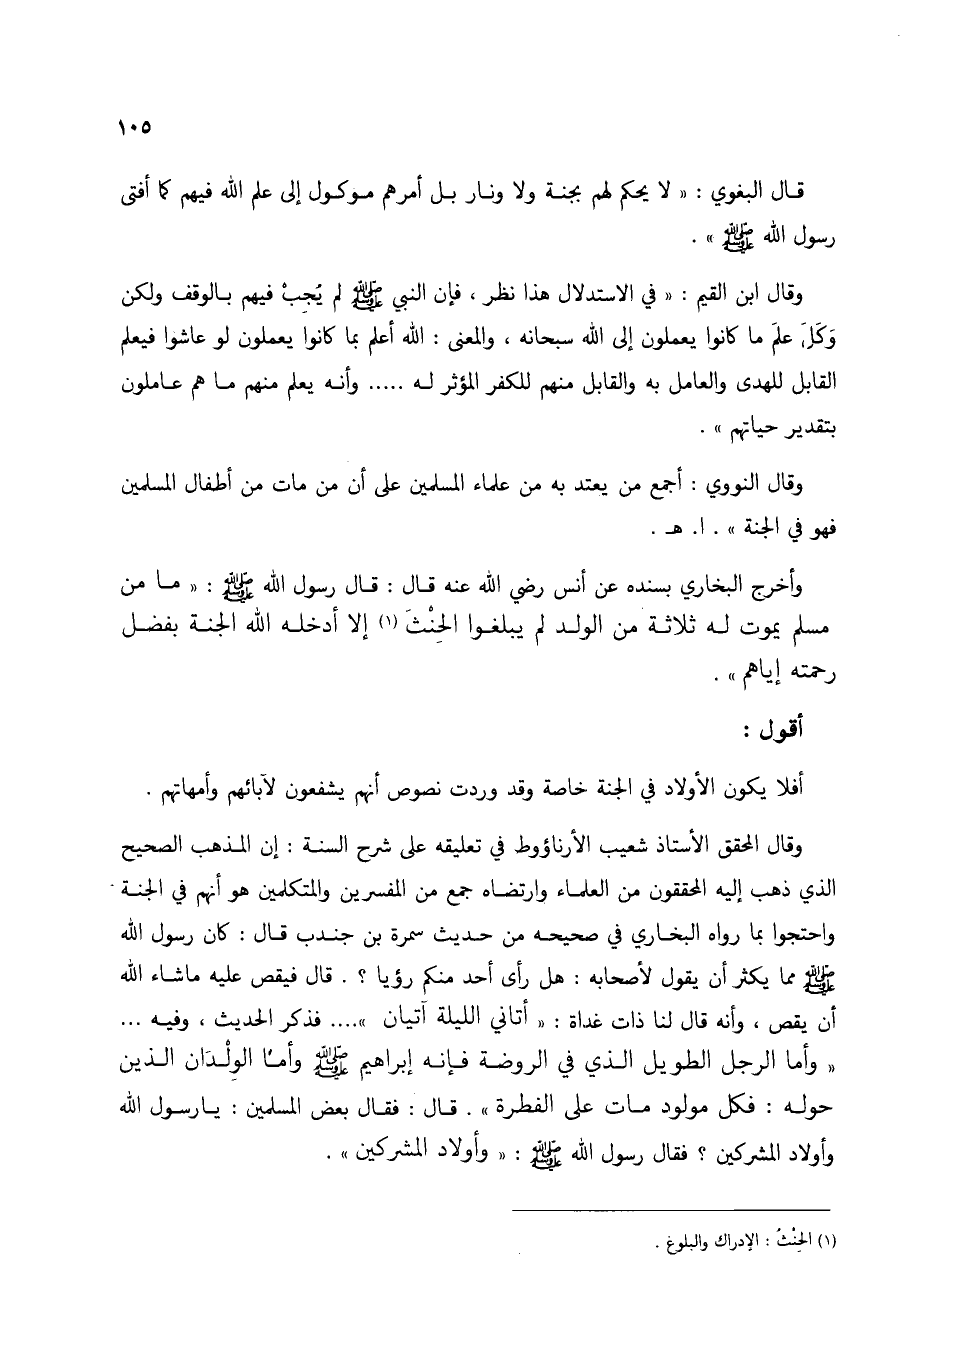 ١٠٥
قال البغوي : « لا يحكم لهم بجنة ولا ونار بل أمرهم موكول إلى علم الله فيهم كما أفتى
رسول الله ﷺ » .
وقال ابن القيم : « في الاستدلال هذا نظر ، فإن النبي ﷺ لم يُجِبْ فيهم بالوقف ولكن
وَكَلَ علمَ ما كانوا يعملون إلى الله سبحانه ، والمعنى : الله أعلم بما كانوا يعملون لو عاشوا فيعلم
القابل للهدى والعامل به والقابل منهم للكفر المؤثر له ..... وأنه يعلم منهم ما هم عاملون
بتقدير حياتهم » .
وقال النووي : أجمع من يعتد به من علماء المسلمين على أن من مات من أطفال المسلمين
فهو في الجنة » . ا. هـ .
وأخرج البخاري بسنده عن أنس رضي الله عنه قال : قال رسول الله ﷺ : « ما من
مسلم يموت له ثلاثة من الولد لم يبلغوا الحِنْثَ (١) إلا أدخله الله الجنة بفضل
رحمته إياهم » .
أقول :
أفلا يكون الأولاد في الجنة خاصة وقد وردت نصوص أنهم يشفعون لآبائهم وأمهاتهم .
وقال المحقق الأستاذ شعيب الأرناؤوط في تعليقه على شرح السنة : إن المذهب الصحيح
الذي ذهب إليه المحققون من العلماء وارتضاه جمع من المفسرين والمتكلمين هو أنهم في الجنة
واحتجوا بما رواه البخاري في صحيحه من حديث سمرة بن جندب قال : كان رسول الله
ﷺ مما يكثر أن يقول لأصحابه : هل رأى أحد منكم رؤيا ؟ . قال فيقص عليه ماشاء الله
أن يقص ، وأنه قال لنا ذات غداة : « أتاني الليلة آتيان ».... فذكر الحديث ، وفيه ...
« وأما الرجل الطويل الذي في الروضة فإنه إبراهيم ﷺ وأما الوِلْدَان الذين
حوله : فكل مولود مات على الفطرة » . قال : فقال بعض المسلمين : يارسول الله
وأولاد المشركين ؟ فقال رسول الله ﷺ : « وأولاد المشركين » .
(١) الحِنْثُ : الإدراك والبلوغ .